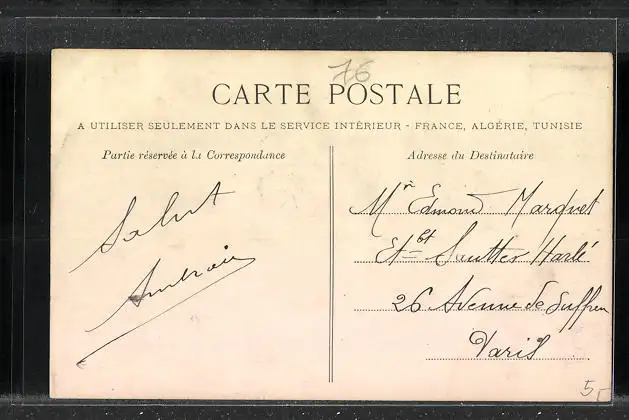 76
CARTE POSTALE
A UTILISER SEULEMENT DANS LE SERVICE INTÉRIEUR - FRANCE, ALGÉRIE, TUNISIE
Partie réservée à la Correspondance
Adresse du Destinataire
Salut
Mr Edmond Marquet
Ets Sautter Harlé
26 Avenue de Suffren
Paris
5